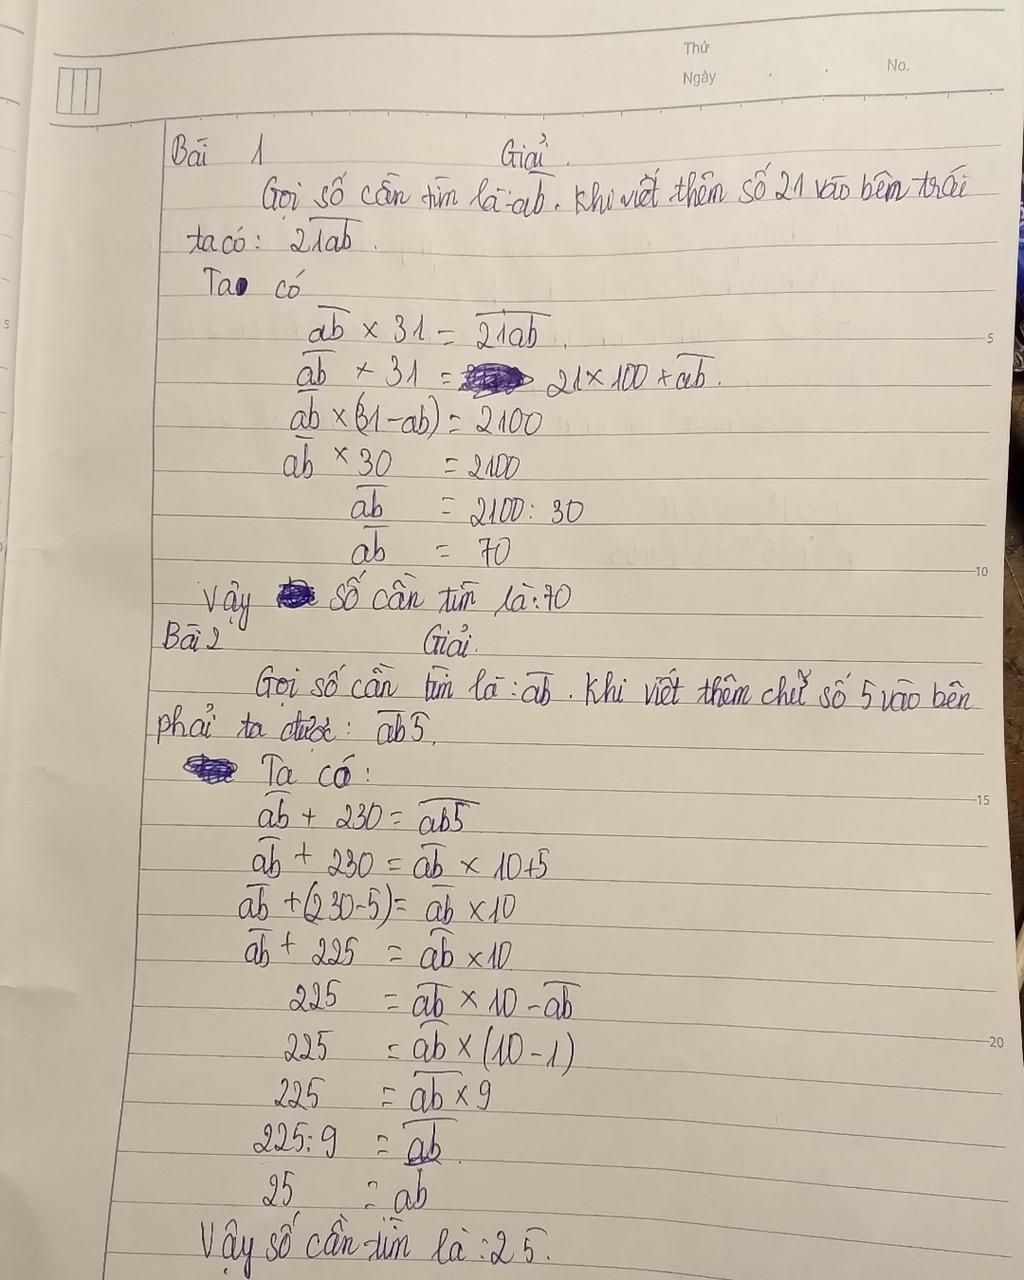 Thứ
Ngày
No.
Bài 1 Giải.
Gọi số cần tìm là: a͞b. Khi viết thêm số 21 vào bên trái
ta có: 2͞1͞a͞b.
Ta có
a͞b × 31 = 2͞1͞a͞b.
a͞b × 31 = 21×100 + a͞b.
a͞b × (31-ab) = 2100
a͞b × 30 = 2100
a͞b = 2100 : 30
a͞b = 70
Vậy số cần tìm là: 70
Bài 2 Giải.
Gọi số cần tìm là: a͞b. Khi viết thêm chữ số 5 vào bên
phải ta được: a͞b͞5.
Ta có:
a͞b + 230 = a͞b͞5
a͞b + 230 = a͞b × 10+5
a͞b + (230-5) = a͞b ×10
a͞b + 225 = a͞b ×10
225 = a͞b × 10 - a͞b
225 = a͞b × (10-1)
225 = a͞b × 9
225:9 = a͞b
25 = ab
Vậy số cần tìm là: 25.
5
10
15
20
5